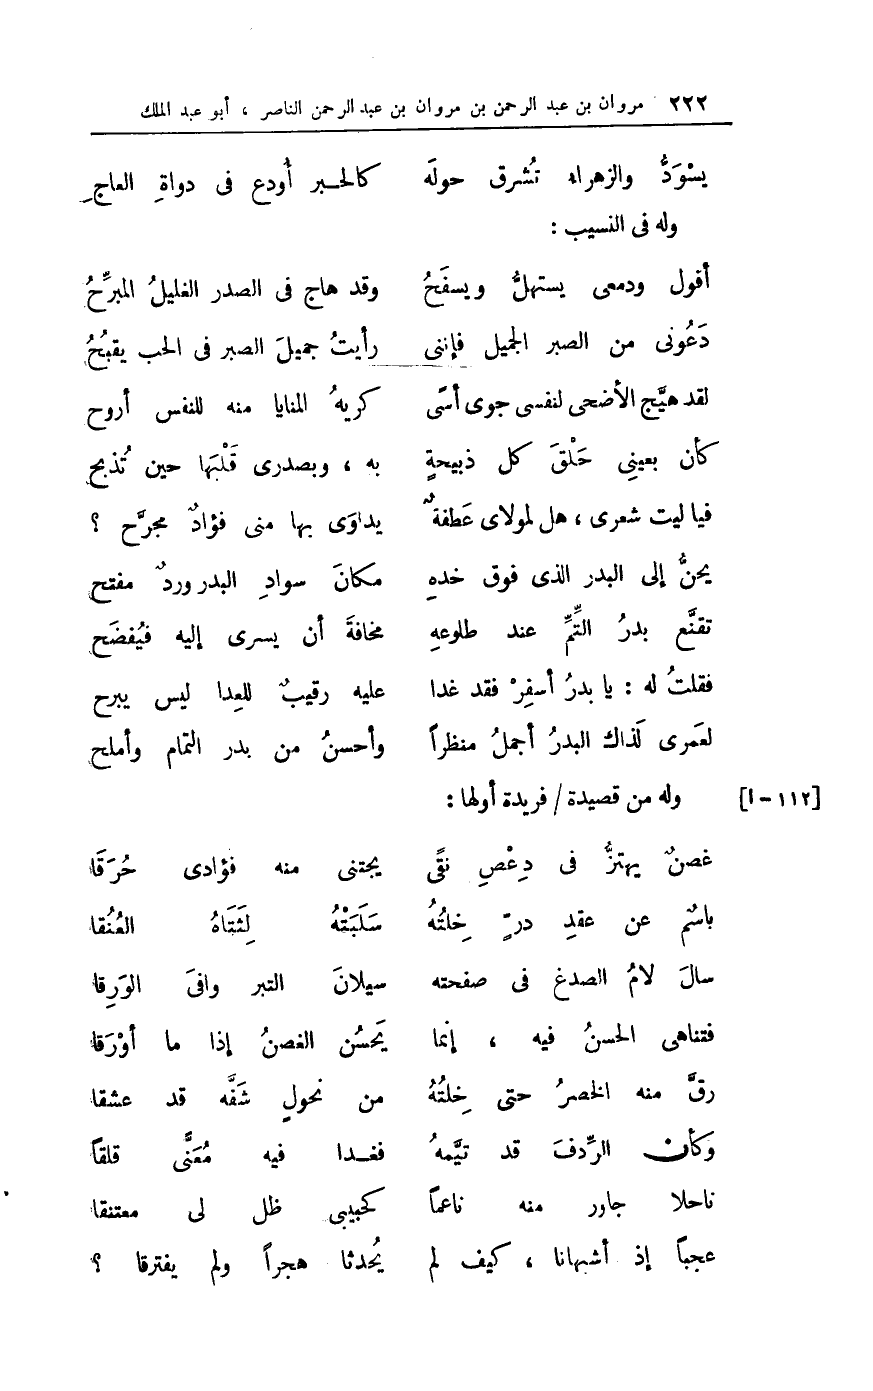 ٢٢٢ مروان بن عبد الرحمن بن مروان بن عبد الرحمن الناصر ، أبو عبد الملك
يسْوَدُّ والزهراء تُشرق حولَه كالحبر أُودع فى دواةِ العاجِ
وله فى النسيب :
أقول ودمعى يستهلُّ ويسفَحُ وقد هاج فى الصدر الغليلُ المبرِّحُ
دَعُونى من الصبر الجميل فإننى رأيتُ جميلَ الصبر فى الحب يقبُحُ
لقد هيَّج الأضحى لنفسى جوى أسًى كريهُ المنايا منه للنفس أروح
كأن بعينِى حَلْقَ كل ذبيحةٍ به ، وبصدرى قَلْبَها حين تُذبح
فيا ليت شعرى ، هل لمولاى عَطفةٌ يداوَى بها منى فؤادٌ مجرَّح ؟
يحنُّ إلى البدر الذى فوق خدهِ مكانَ سوادِ البدر وردٌ مفتح
تقنَّع بدرُ التِّمِّ عند طلوعهِ مخافةَ أن يسرى إليه فيُفضَح
فقلتُ له : يا بدرُ أسفِرْ فقد غدا عليه رقيبٌ للعِدا ليس يبرح
لعَمرى لَذاك البدرُ أجملُ منظراً وأحسنُ من بدر التمام وأملح
[١١٢ - ا] وله من قصيدة / فريدة أولها :
غصنٌ يهتزُّ فى دِعْصِ نقًى يجتنى منه فؤادى حُرَقَا
باسُم عن عقدِ درٍّ خِلتُهُ سَلَبَتْهُ لِثَتَاهُ العُنُقا
سالَ لامُ الصدغ فى صفحته سيلانَ التبر وافىَ الوَرِقا
فتناهى الحسنُ فيه ، إنما يَحسُن الغصنُ إذا ما أوْرَقا
رقَّ منه الخصرُ حتى خِلتُهُ من نحولٍ شَفَّه قد عشقا
وكأن الرِّدفَ قد تيَّمهُ فغدا فيه مُعَنًّى قلقاً
ناحلا جاور منه ناعماً كحبيبى ظل لى معتنقا
عجباً إذ أشبهانا ، كيف لم يُحدثا هجراً ولم يفترقا ؟